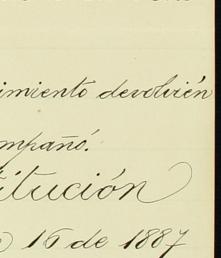 imiento devolvién
mpañó.
titución
16 de 1887